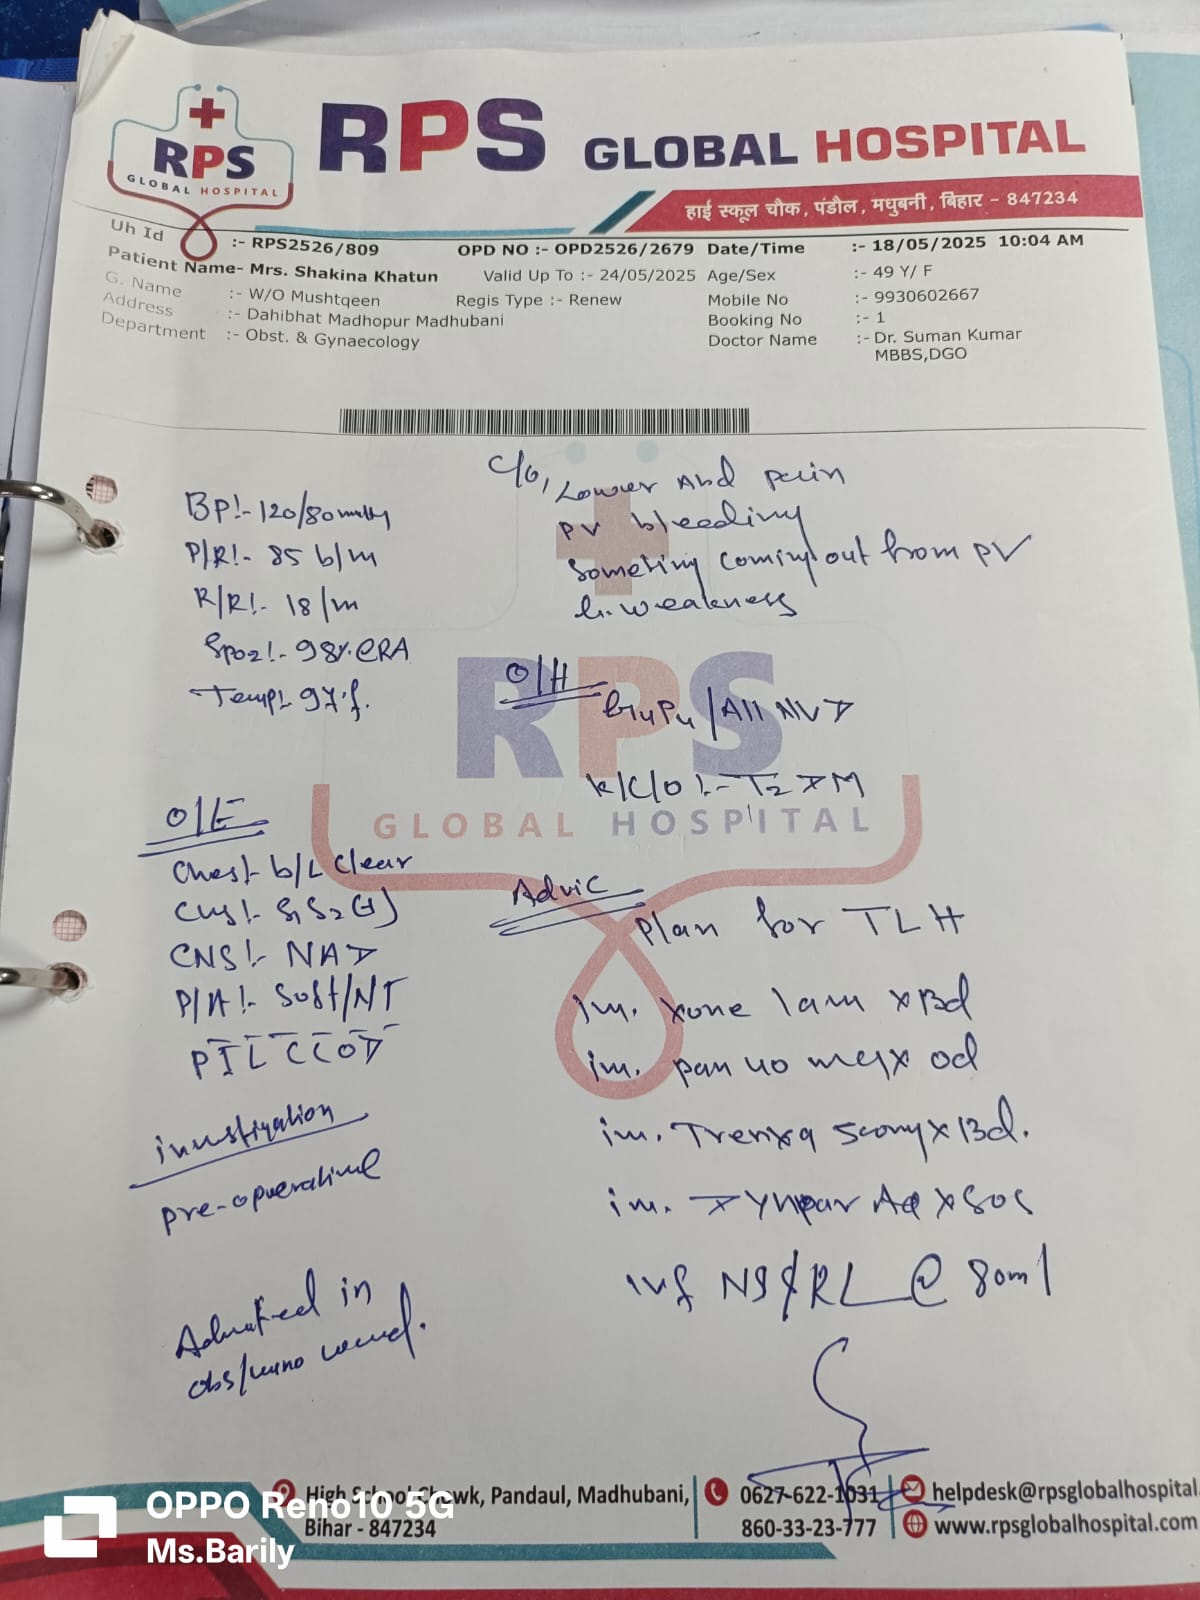 RPS
GLOBAL HOSPITAL
RPS GLOBAL HOSPITAL
हाई स्कूल चौक, पंडौल, मधुबनी, बिहार - 847234
Uh Id :- RPS2526/809 OPD NO :- OPD2526/2679 Date/Time :- 18/05/2025 10:04 AM
Patient Name- Mrs. Shakina Khatun Valid Up To :- 24/05/2025 Age/Sex :- 49 Y/ F
G. Name :- W/O Mushtqeen Regis Type :- Renew Mobile No :- 9930602667
Address :- Dahibhat Madhopur Madhubani Booking No :- 1
Department :- Obst. & Gynaecology Doctor Name :- Dr. Suman Kumar
MBBS,DGO
C/o, Lower Abd pain
PV bleeding
Someting coming out from PV
weakness
BP:- 120/80mmHg
P/R:- 85 b/m
R/R:- 18/m
Spo2:- 98%@RA
Temp:- 97°f.
O/H
G4P4/All NVD
K/C/O:- T2DM
O/E
Chest:- b/L Clear
CVS:- S1S2(+)
CNS:- NAD
P/A:- Soft/NT
PILCCOD
investigation
pre-operative
Admitted in
obs/ ward.
Advic
Plan for TLH
inj. xone 1am x Bd
inj. pan 40 mg x od
inj. Trenxa 500mg x Bd.
inj. Dynpar AQ x SOS
inf NS/RL @ 80ml
RPS
GLOBAL HOSPITAL
High School Chowk, Pandaul, Madhubani,
Bihar - 847234
0627-622-1031
860-33-23-777
helpdesk@rpsglobalhospital.
www.rpsglobalhospital.com
OPPO Reno10 5G
Ms.Barily